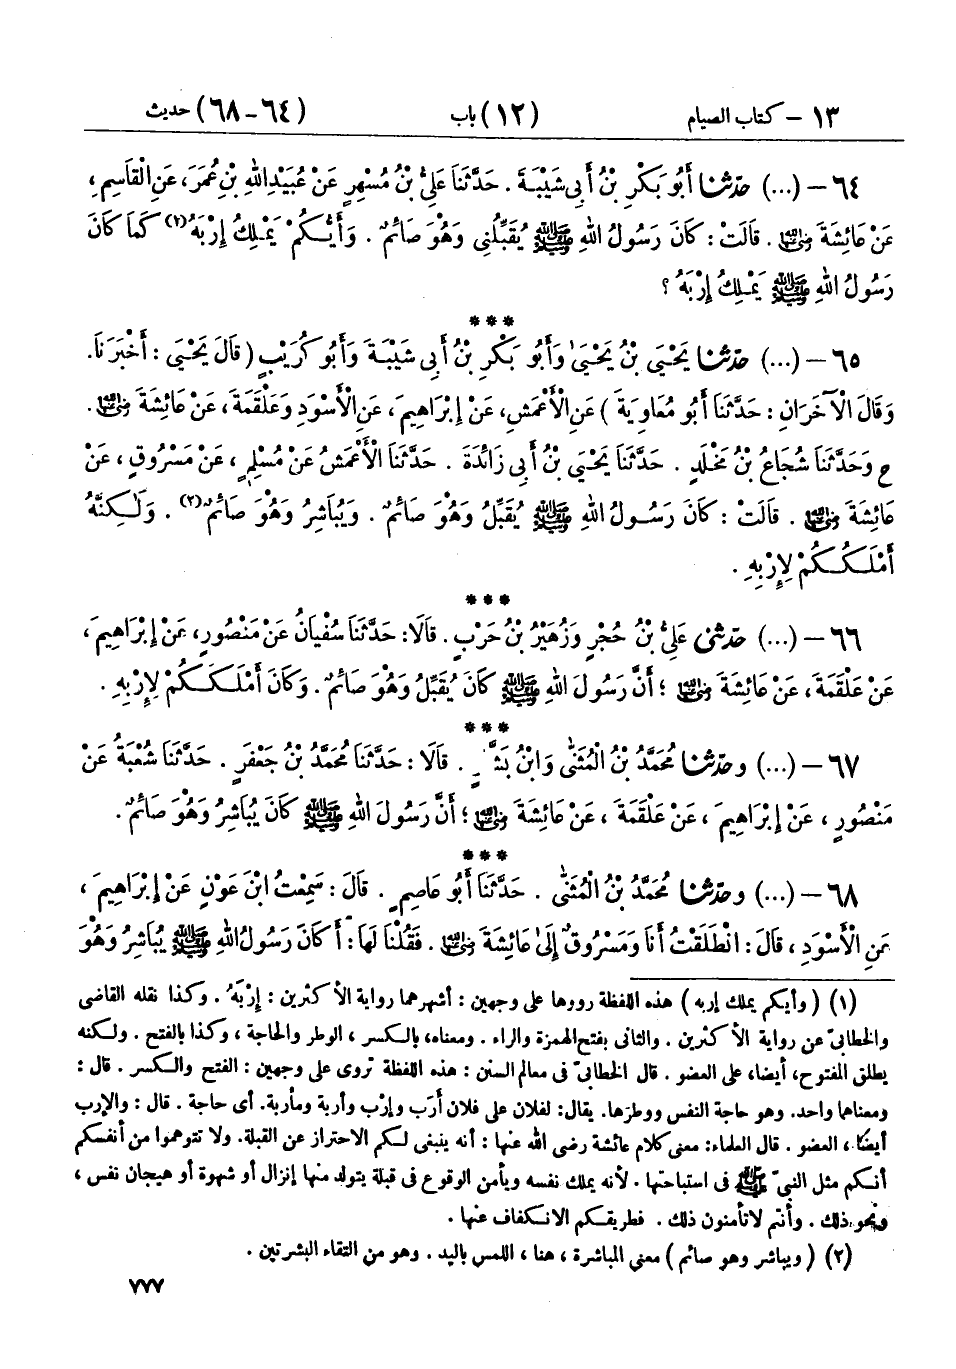 ١٣ – كتاب الصيام (١٢) باب (٦٤–٦٨) حديث
٦٤ – (...) حَدَّثَنَا أَبُو بَكْرِ بْنُ أَبِي شَيْبَةَ . حَدَّثَنَا عَلِيُّ بْنُ مُسْهِرٍ عَنْ عُبَيْدِ اللهِ بْنِ عُمَرَ، عَنِ الْقَاسِمِ،
عَنْ عَائِشَةَ رضي الله عنها . قَالَتْ : كَانَ رَسُولُ اللهِ ﷺ يُقَبِّلُنِي وَهُوَ صَائِمٌ . وَأَيُّكُمْ يَمْلِكُ إِرْبَهُ(١) كَمَا كَانَ
رَسُولُ اللهِ ﷺ يَمْلِكُ إِرْبَهُ ؟
***
٦٥ – (...) حَدَّثَنَا يَحْيَىٰ بْنُ يَحْيَىٰ وَأَبُو بَكْرِ بْنُ أَبِي شَيْبَةَ وَأَبُو كُرَيْبٍ ( قَالَ يَحْيَىٰ : أَخْبَرَنَا.
وَقَالَ الْآخَرَانِ : حَدَّثَنَا أَبُو مُعَاوِيَةَ ) عَنِ الْأَعْمَشِ، عَنْ إِبْرَاهِيمَ، عَنِ الْأَسْوَدِ وَعَلْقَمَةَ، عَنْ عَائِشَةَ رضي الله عنها .
ح وَحَدَّثَنَا شُجَاعُ بْنُ مَخْلَدٍ . حَدَّثَنَا يَحْيَىٰ بْنُ أَبِي زَائِدَةَ . حَدَّثَنَا الْأَعْمَشُ عَنْ مُسْلِمٍ، عَنْ مَسْرُوقٍ، عَنْ
عَائِشَةَ رضي الله عنها . قَالَتْ : كَانَ رَسُولُ اللهِ ﷺ يُقَبِّلُ وَهُوَ صَائِمٌ . وَيُبَاشِرُ وَهُوَ صَائِمٌ(٢) . وَلَٰكِنَّهُ
أَمْلَكُكُمْ لِإِرْبِهِ .
***
٦٦ – (...) حَدَّثَنِي عَلِيُّ بْنُ حُجْرٍ وَزُهَيْرُ بْنُ حَرْبٍ . قَالَا: حَدَّثَنَا سُفْيَانُ عَنْ مَنْصُورٍ، عَنْ إِبْرَاهِيمَ،
عَنْ عَلْقَمَةَ، عَنْ عَائِشَةَ رضي الله عنها ؛ أَنَّ رَسُولَ اللهِ ﷺ كَانَ يُقَبِّلُ وَهُوَ صَائِمٌ. وَكَانَ أَمْلَكَكُمْ لِإِرْبِهِ .
***
٦٧ – (...) وحَدَّثَنَا مُحَمَّدُ بْنُ الْمُثَنَّىٰ وَابْنُ بَشَّارٍ . قَالَا : حَدَّثَنَا مُحَمَّدُ بْنُ جَعْفَرٍ . حَدَّثَنَا شُعْبَةُ عَنْ
مَنْصُورٍ ، عَنْ إِبْرَاهِيمَ ، عَنْ عَلْقَمَةَ ، عَنْ عَائِشَةَ رضي الله عنها ؛ أَنَّ رَسُولَ اللهِ ﷺ كَانَ يُبَاشِرُ وَهُوَ صَائِمٌ.
***
٦٨ – (...) وحَدَّثَنَا مُحَمَّدُ بْنُ الْمُثَنَّىٰ . حَدَّثَنَا أَبُو عَاصِمٍ . قَالَ : سَمِعْتُ ابْنَ عَوْنٍ عَنْ إِبْرَاهِيمَ ،
عَنِ الْأَسْوَدِ ، قَالَ : انْطَلَقْتُ أَنَا وَمَسْرُوقٌ إِلَىٰ عَائِشَةَ رضي الله عنها . فَقُلْنَا لَهَا: أَكَانَ رَسُولُ اللهِ ﷺ يُبَاشِرُ وَهُوَ
(١) ( وأيكم يملك إربه ) هذه اللفظة رووها على وجهين : أشهرهما رواية الأكثرين : إِرْبَهُ . وكذا نقله القاضى
والخطابىّ عن رواية الأكثرين . والثانى بفتح الهمزة والراء . ومعناه، بالكسر ، الوطر والحاجة ، وكذا بالفتح . ولكنه
يطلق المفتوح، أيضا، على العضو . قال الخطابىّ فى معالم السنن : هذه اللفظة تروى على وجهين : الفتح والكسر . قال :
ومعناهما واحد. وهو حاجة النفس ووطرها. يقال: لفلان على فلان أَرَب وإرْب وأربة ومأربة. أى حاجة . قال : والإرب
أيضًا، العضو . قال العلماء: معنى كلام عائشة رضى الله عنها : أنه ينبغى لكم الاحتراز عن القبلة. ولا تتوهموا من أنفسكم
أنكم مثل النبىّ ﷺ فى استباحتها . لأنه يملك نفسه ويأمن الوقوع فى قبلة يتولد منها إنزال أو شهوة أو هيجان نفس ،
ونحو ذلك . وأنتم لا تأمنون ذلك . فطريقكم الانكفاف عنها .
(٢) ( ويباشر وهو صائم ) معنى المباشرة ، هنا ، اللمس باليد . وهو من التقاء البشرتين .
٧٧٧